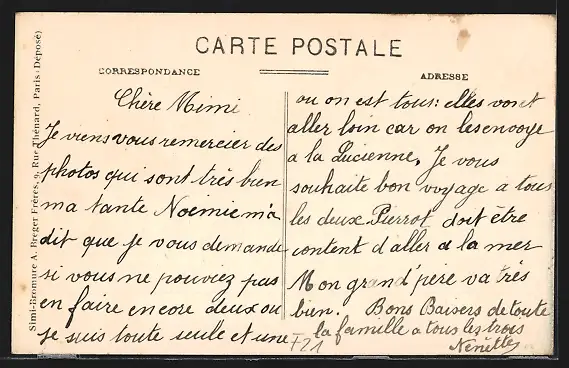 CARTE POSTALE
CORRESPONDANCE
ADRESSE
Simi-Bromure A. Breger Frères, 9, Rue Thénard, Paris (Déposé)
Chère Mimi
Je viens vous remercier des
photos qui sont très bien
ma tante Noémie m'a
dit que je vous demande
si vous ne pouviez pas
en faire encore deux ou
je suis toute seule et une
ou on est tous: elles vont
aller loin car on les envoye
a la Lucienne. Je vous
souhaite bon voyage a tous
les deux Pierrot doit être
content d'aller a la mer
Mon grand'père va très
bien. Bons Baisers de toute
la famille a tous les trois
Nénette
F21